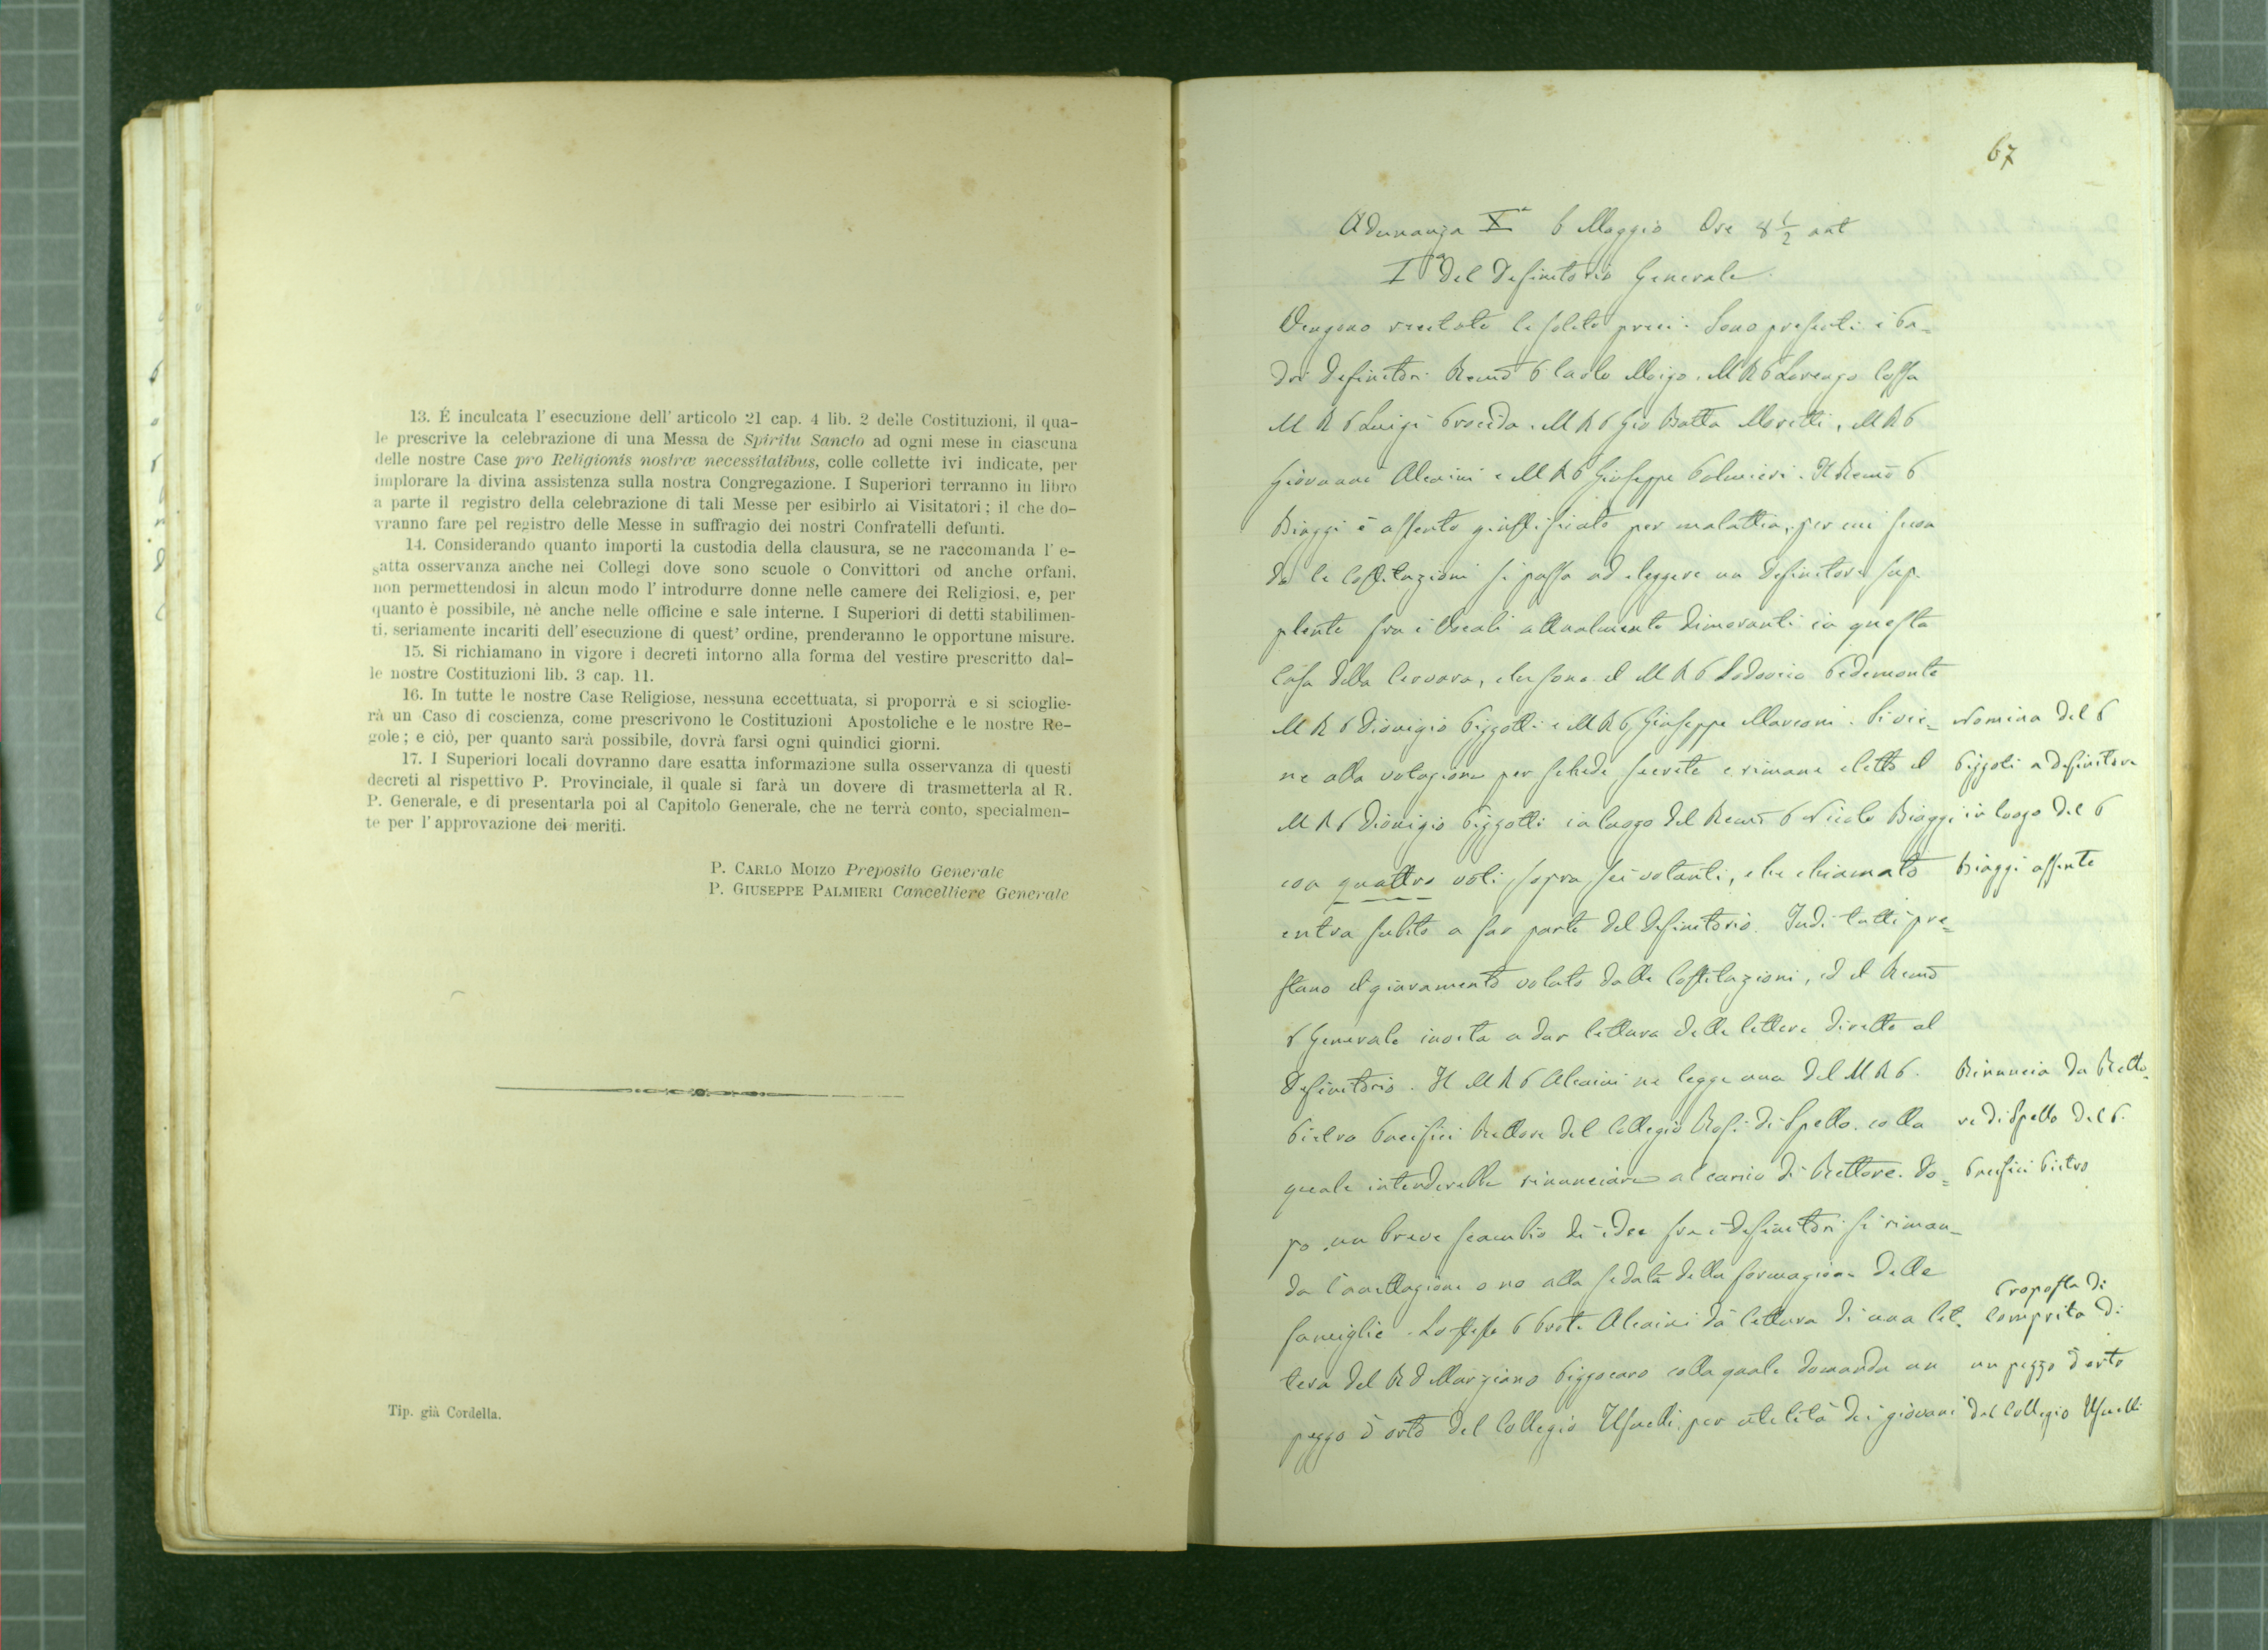 13. É inculcata l' esecuzione dell' articolo 21 cap. 4 lib. 2 delle Costituzioni, il qua-
le prescrive la celebrazione di una Messa de Spiritu Sancto ad ogni mese in ciascuna
delle nostre Case pro Religionis nostræ necessitatibus, colle collette ivi indicate, per
implorare la divina assistenza sulla nostra Congregazione. I Superiori terranno in libro
a parte il registro della celebrazione di tali Messe per esibirlo ai Visitatori; il che do-
vranno fare pel registro delle Messe in suffragio dei nostri Confratelli defunti.
14. Considerando quanto importi la custodia della clausura, se ne raccomanda l' e-
satta osservanza anche nei Collegi dove sono scuole o Convittori od anche orfani,
non permettendosi in alcun modo l' introdurre donne nelle camere dei Religiosi, e, per
quanto è possibile, nè anche nelle officine e sale interne. I Superiori di detti stabilimen-
ti, seriamente incariti dell' esecuzione di quest' ordine, prenderanno le opportune misure.
15. Si richiamano in vigore i decreti intorno alla forma del vestire prescritto dal-
le nostre Costituzioni lib. 3 cap. 11.
16. In tutte le nostre Case Religiose, nessuna eccettuata, si proporrà e si scioglie-
rà un Caso di coscienza, come prescrivono le Costituzioni Apostoliche e le nostre Re-
gole; e ciò, per quanto sarà possibile, dovrà farsi ogni quindici giorni.
17. I Superiori locali dovranno dare esatta informazione sulla osservanza di questi
decreti al rispettivo P. Provinciale, il quale si farà un dovere di trasmetterla al R.
P. Generale, e di presentarla poi al Capitolo Generale, che ne terrà conto, specialmen-
te per l' approvazione dei meriti.
P. CARLO MOIZO Preposito Generale
P. GIUSEPPE PALMIERI Cancelliere Generale
Tip. già Cordella.
67
Adunanza Xª 6 Maggio Ore 8 1/2 ant
Iª del Definitorio Generale
Vengono recitate le solite preci. Sono presenti i Pa=
dri Definitori Remo P Carlo Moizo. M R P Lorenzo Cossa
M R P Luigi Procida. M R P Gio Batta Moretti, M R P
Giovanni Alcaini e M R P Giuseppe Palmieri. Il Remo P
Biaggi è assente giustificato per malattia, per cui secon
do le Costituzioni si passa ad eleggere un Definitore sup-
plente fra i Vocali attualmente dimoranti in questa
Casa della Cervara, che sono il M R P Lodovico Pedemonte
M R P Dionigio Pizzotti e M R P Giuseppe Marconi. Si vie=
ne alla votazione per schede secrete e rimane eletto il
M R P Dionigio Pizzotti in luogo del Remo P Nicolo Biaggi
con quattro voti sopra sei votanti, che chiamato
entra subito a far parte del Definitorio. Indi tutti pre=
stano il giuramento voluto dalle Costituzioni, ed il Remo
P Generale invita a dar lettura delle lettere dirette al
Definitorio. Il M R P Alcaini ne legge una del M R P.
Pietro Pacifici Rettore del Collegio Rosi di Spello, colla
quale intenderebbe rinunciare al carico di Rettore. Do=
po un breve scambio di idee fra i definitori si riman=
da l'accettazione o no alla seduta della formazione delle
famiglie. Lo stesso P Prov. Alcaini dà lettura di una let=
tera del R D Marziano Pizzocaro colla quale domanda un
pezzo d'orto del Collegio Usuelli per utilità dei giovani
Nomina del P
Pizzoti a definitore
in luogo del P
Biaggi assente
Rinuncia da Retto=
re di Spello del P.
Pacifici Pietro
Proposta di
Comprita di
un pezzo d'orto
del Collegio Usuelli